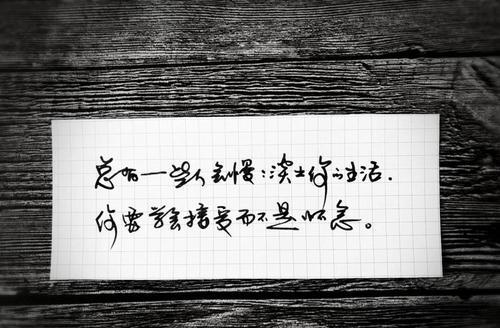 总有一些人会慢:淡出你的生活.
你要学会接受而不是怀念。